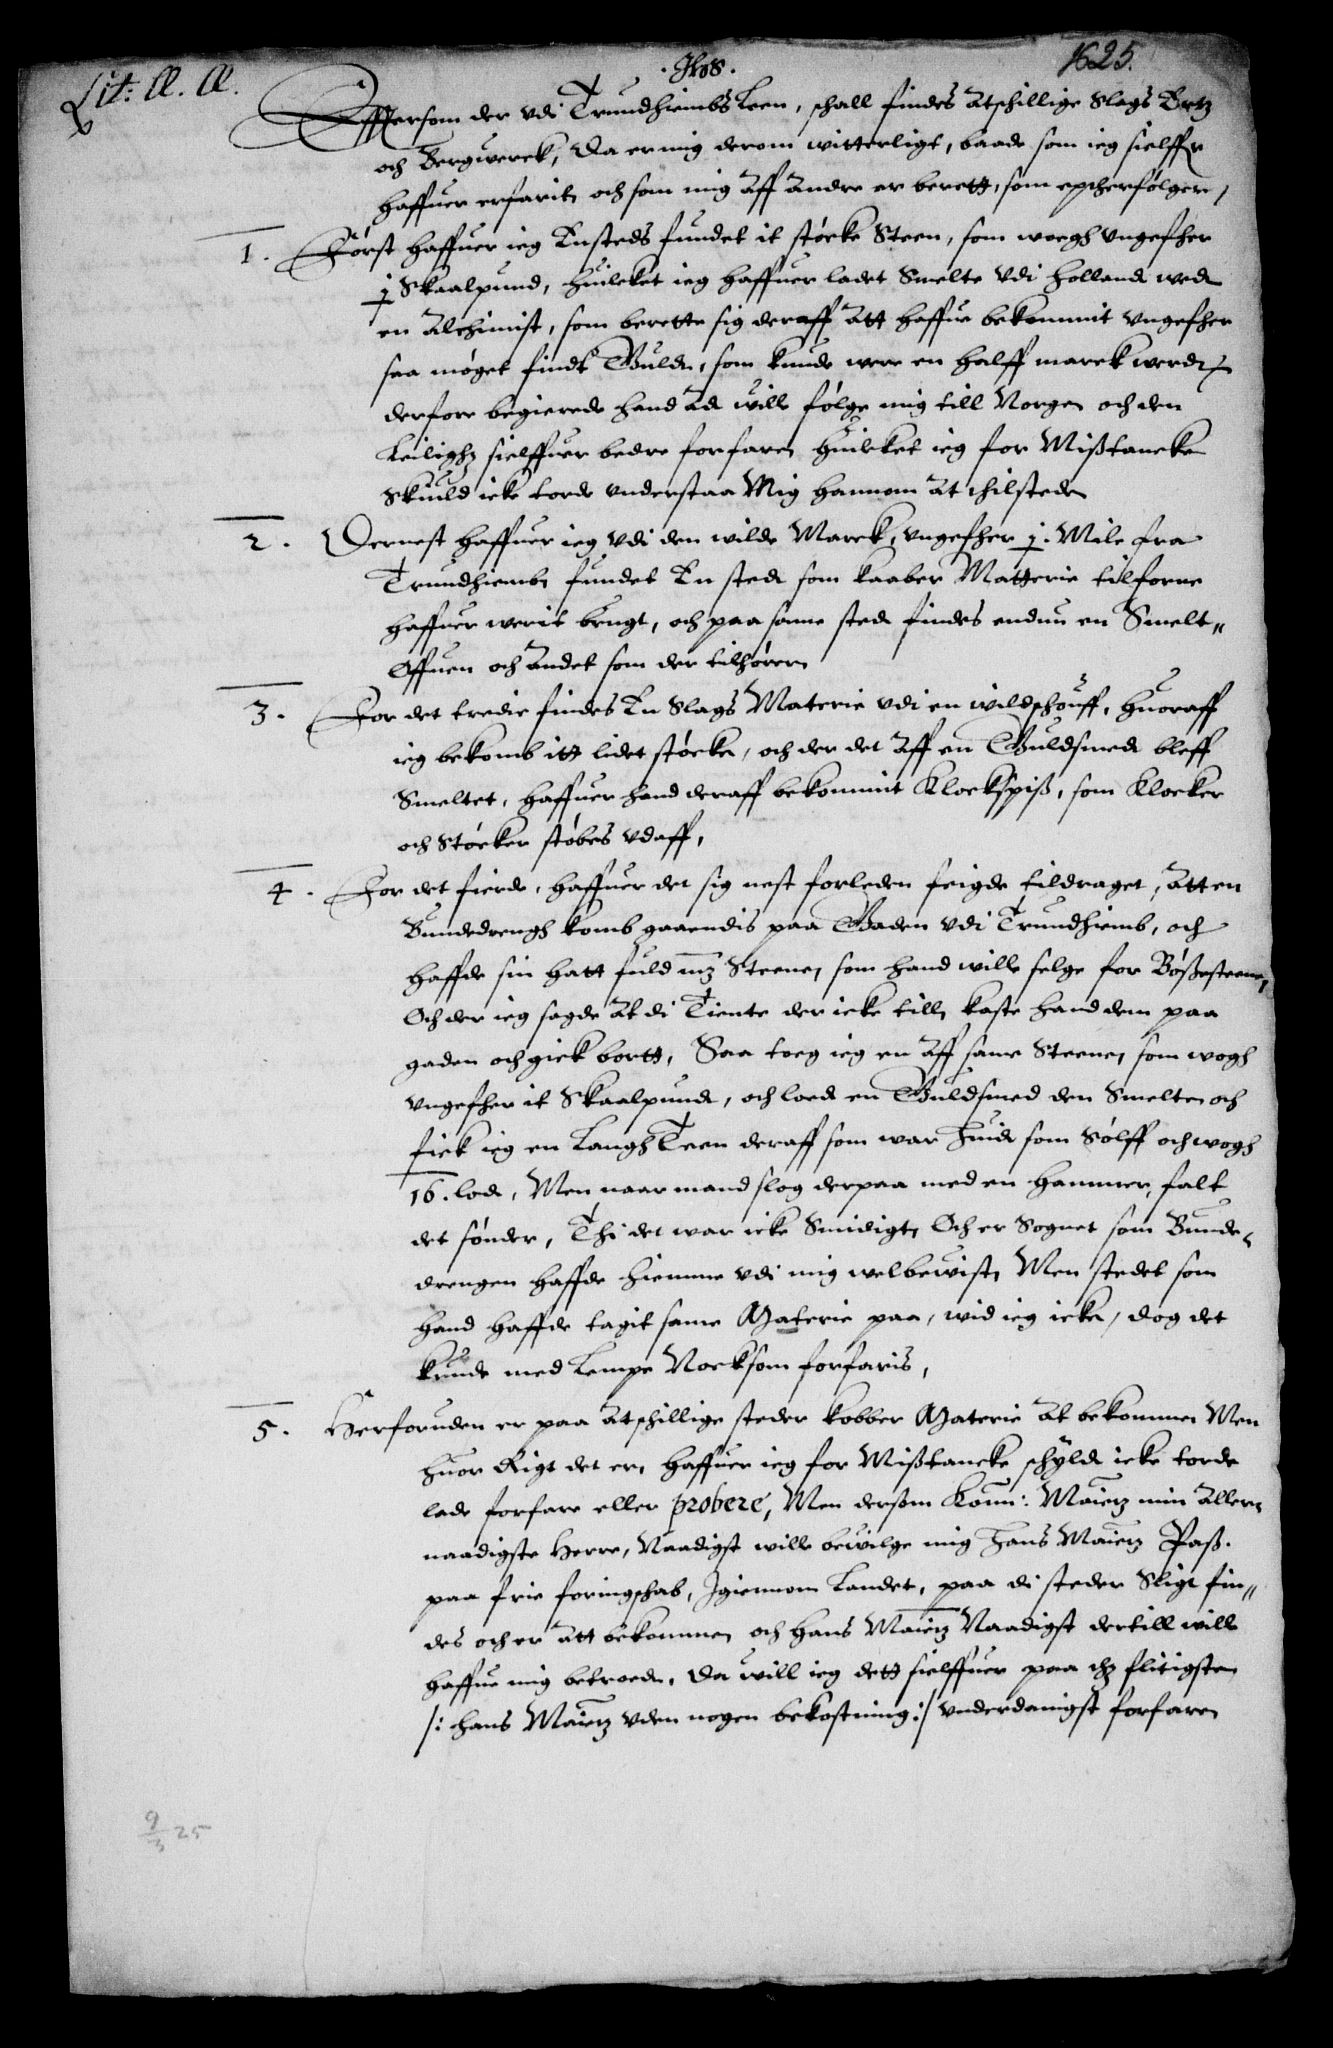 Lit: A. A.
. Jhs .
1625.
Effttersom der vdi Trundhiembs Leen, schall findes atschillige slags Ertz
och Bergwerck, Da er mig derom witterligt, baade som ieg sielffr
haffuer erfarit, och som mig aff andre er berett, som epcherfølger,
1. Først haffuer ieg Ensteds fundet it støcke Steen, som woegh vngefher
j Skaalpund, huilcket ieg haffuer ladet Smelte vdi Holland wed
en Alchimist, som berette sig deraff att haffue bekommit vngefher
saa møget findt Guld, som kunde were en halff marck werd,
derfore begierede hand ad wille følge mig till Norge, och den
Leilighz sielffuer bedre forfare, huilcket ieg for Mißtancke
Skuld icke torde vnderstaa Mig hannom at tilstede
2. Dernest haffuer ieg vdi den wilde Marck, vngefher j. Mile fra
Trundhiemb, fundet En sted som kaaber Matterie tilforne
haffuer werit brugt, och paa same sted findes endnu en Smelt„
Offuen och andet som der tilhører
3. For det tredie findes En Slags Materie vdi en wildschouff, huoraff
ieg bekomb itt lidet støcke, och der det aff en Guldsmed bleff
Smeltet, haffuer hand deraff bekommit Klockspiß, som Klocker
och Støcker støbes vdaff,
4. For det fierde, haffuer det sig nest forleden feigde tildraget, att en
Bundedrengh komb gaaendis paa Gaden vdi Trundhiemb, och
haffde sin hatt fuld mz Steene, som hand wille selge for Bößesteene,
Och der ieg sagde at di Tiente der icke till, kaste hand dem paa
gaden och gick bortt, Saa toeg ieg en aff same Steene, som wogh
vngefher it Skaalpund, och loed en Guldsmed den Smelte, och
fick ieg en Langh Teen deraff som war huid som Sølff och wogh
16. lod, Men naar mand slog derpaa med en hammer, falt
det sønder, Thi det war icke Smidigt, Och er Sognet som Bunde„
drengen haffde hiemme vdi mig welbewist, Men stedet som
hand haffde tagit same Materie paa, wid ieg icke, dog det
kunde med Lempe Nocksom forfaris,
5. Herforuden er paa atschillige steder kobber Materie at bekomme, Men
huor Rigt det er, haffuer ieg for Mißtancke schyld icke torde
lade forfare eller probere, Men dersom Konn: Maiestz min aller„
naadigste Herre, Naadigst wille bewilge mig Hans Maiestz Paß.
paa frie foringschab, Igiennom Landet, paa di steder Sligt fin„
des och er att bekomme, och Hans Maiestz Naadigst dertill wille
haffue mig betroede, Da will ieg dett sielffuer paa thz flitigste
/: Hans Maiestz vden nogen bekostning :/ vnderdanigst forfare
9/3 25